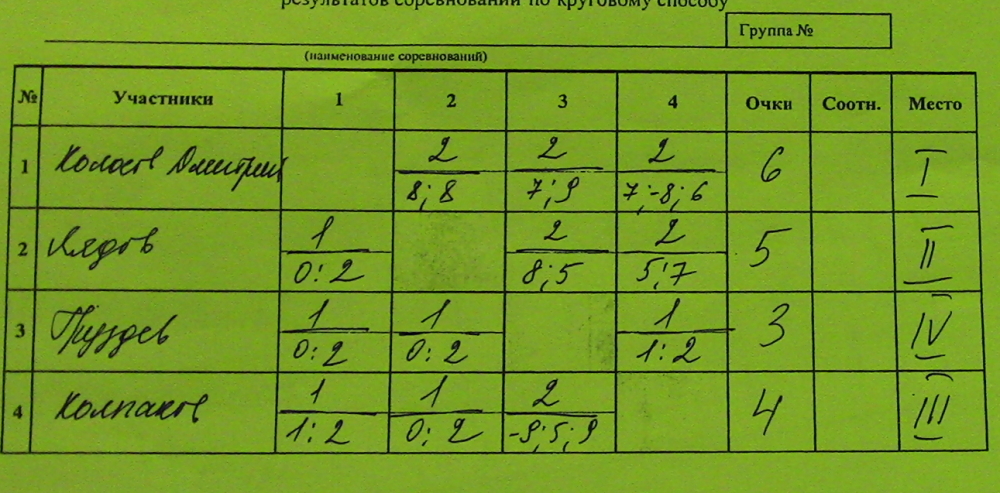 результатов соревнований по круговому способу
Группа №
(наименование соревнований)
№ Участники 1 2 3 4 Очки Соотн. Место
1 Колосов Дмитрий 2 2 2 6 I
8; 8 7; 9 7; -8; 6
2 Лядов 1 2 2 5 II
0: 2 8; 5 5; 7
3 Груздев 1 1 1 3 IV
0: 2 0: 2 1: 2
4 Колпаков 1 1 2 4 III
1: 2 0; 2 -9; 5; 9